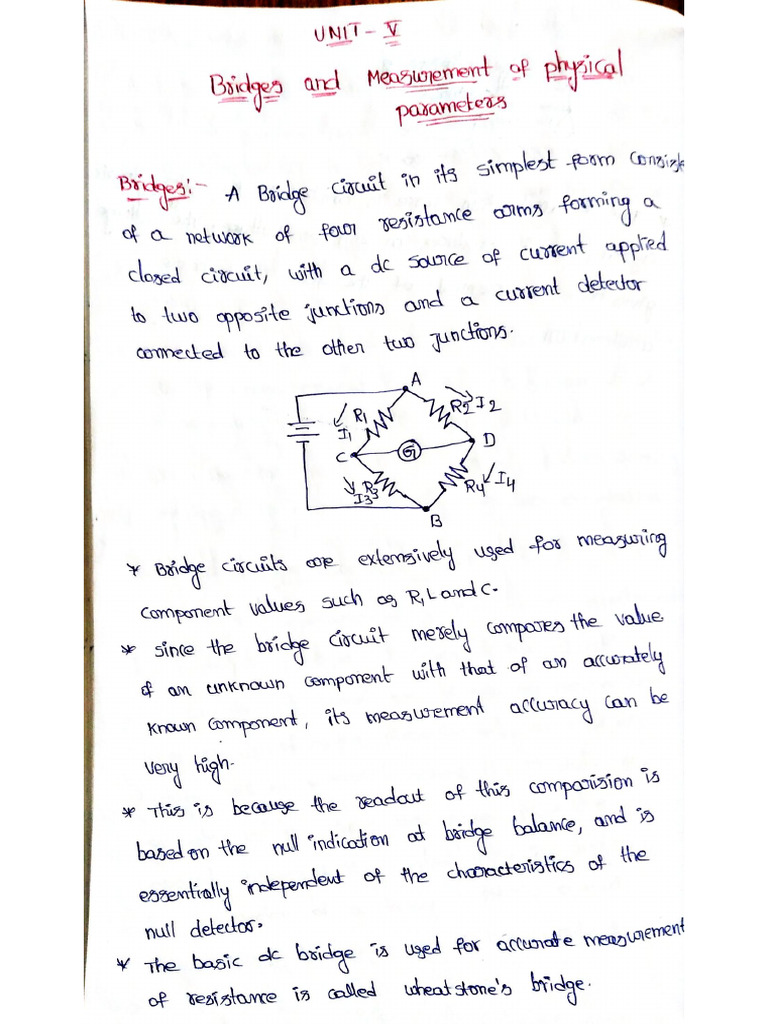 UNIT - V
Bridges and Measurement of physical
parameters
Bridges:- A Bridge circuit in its simplest form consists
of a network of four resistance arms forming a
closed circuit, with a dc source of current applied
to two opposite junctions and a current detector
connected to the other two junctions.
A
R1
I1
R2 I2
C
G
D
R3
I3
R4
I4
B
* Bridge circuits are extensively used for measuring
component values such as R, L and C.
* since the bridge circuit merely compares the value
of an unknown component with that of an accurately
known component, its measurement accuracy can be
very high.
* This is because the readout of this comparision is
based on the null indication at bridge balance, and is
essentially independent of the characteristics of the
null detector.
* The basic dc bridge is used for accurate measurement
of resistance is called wheatstone's bridge.